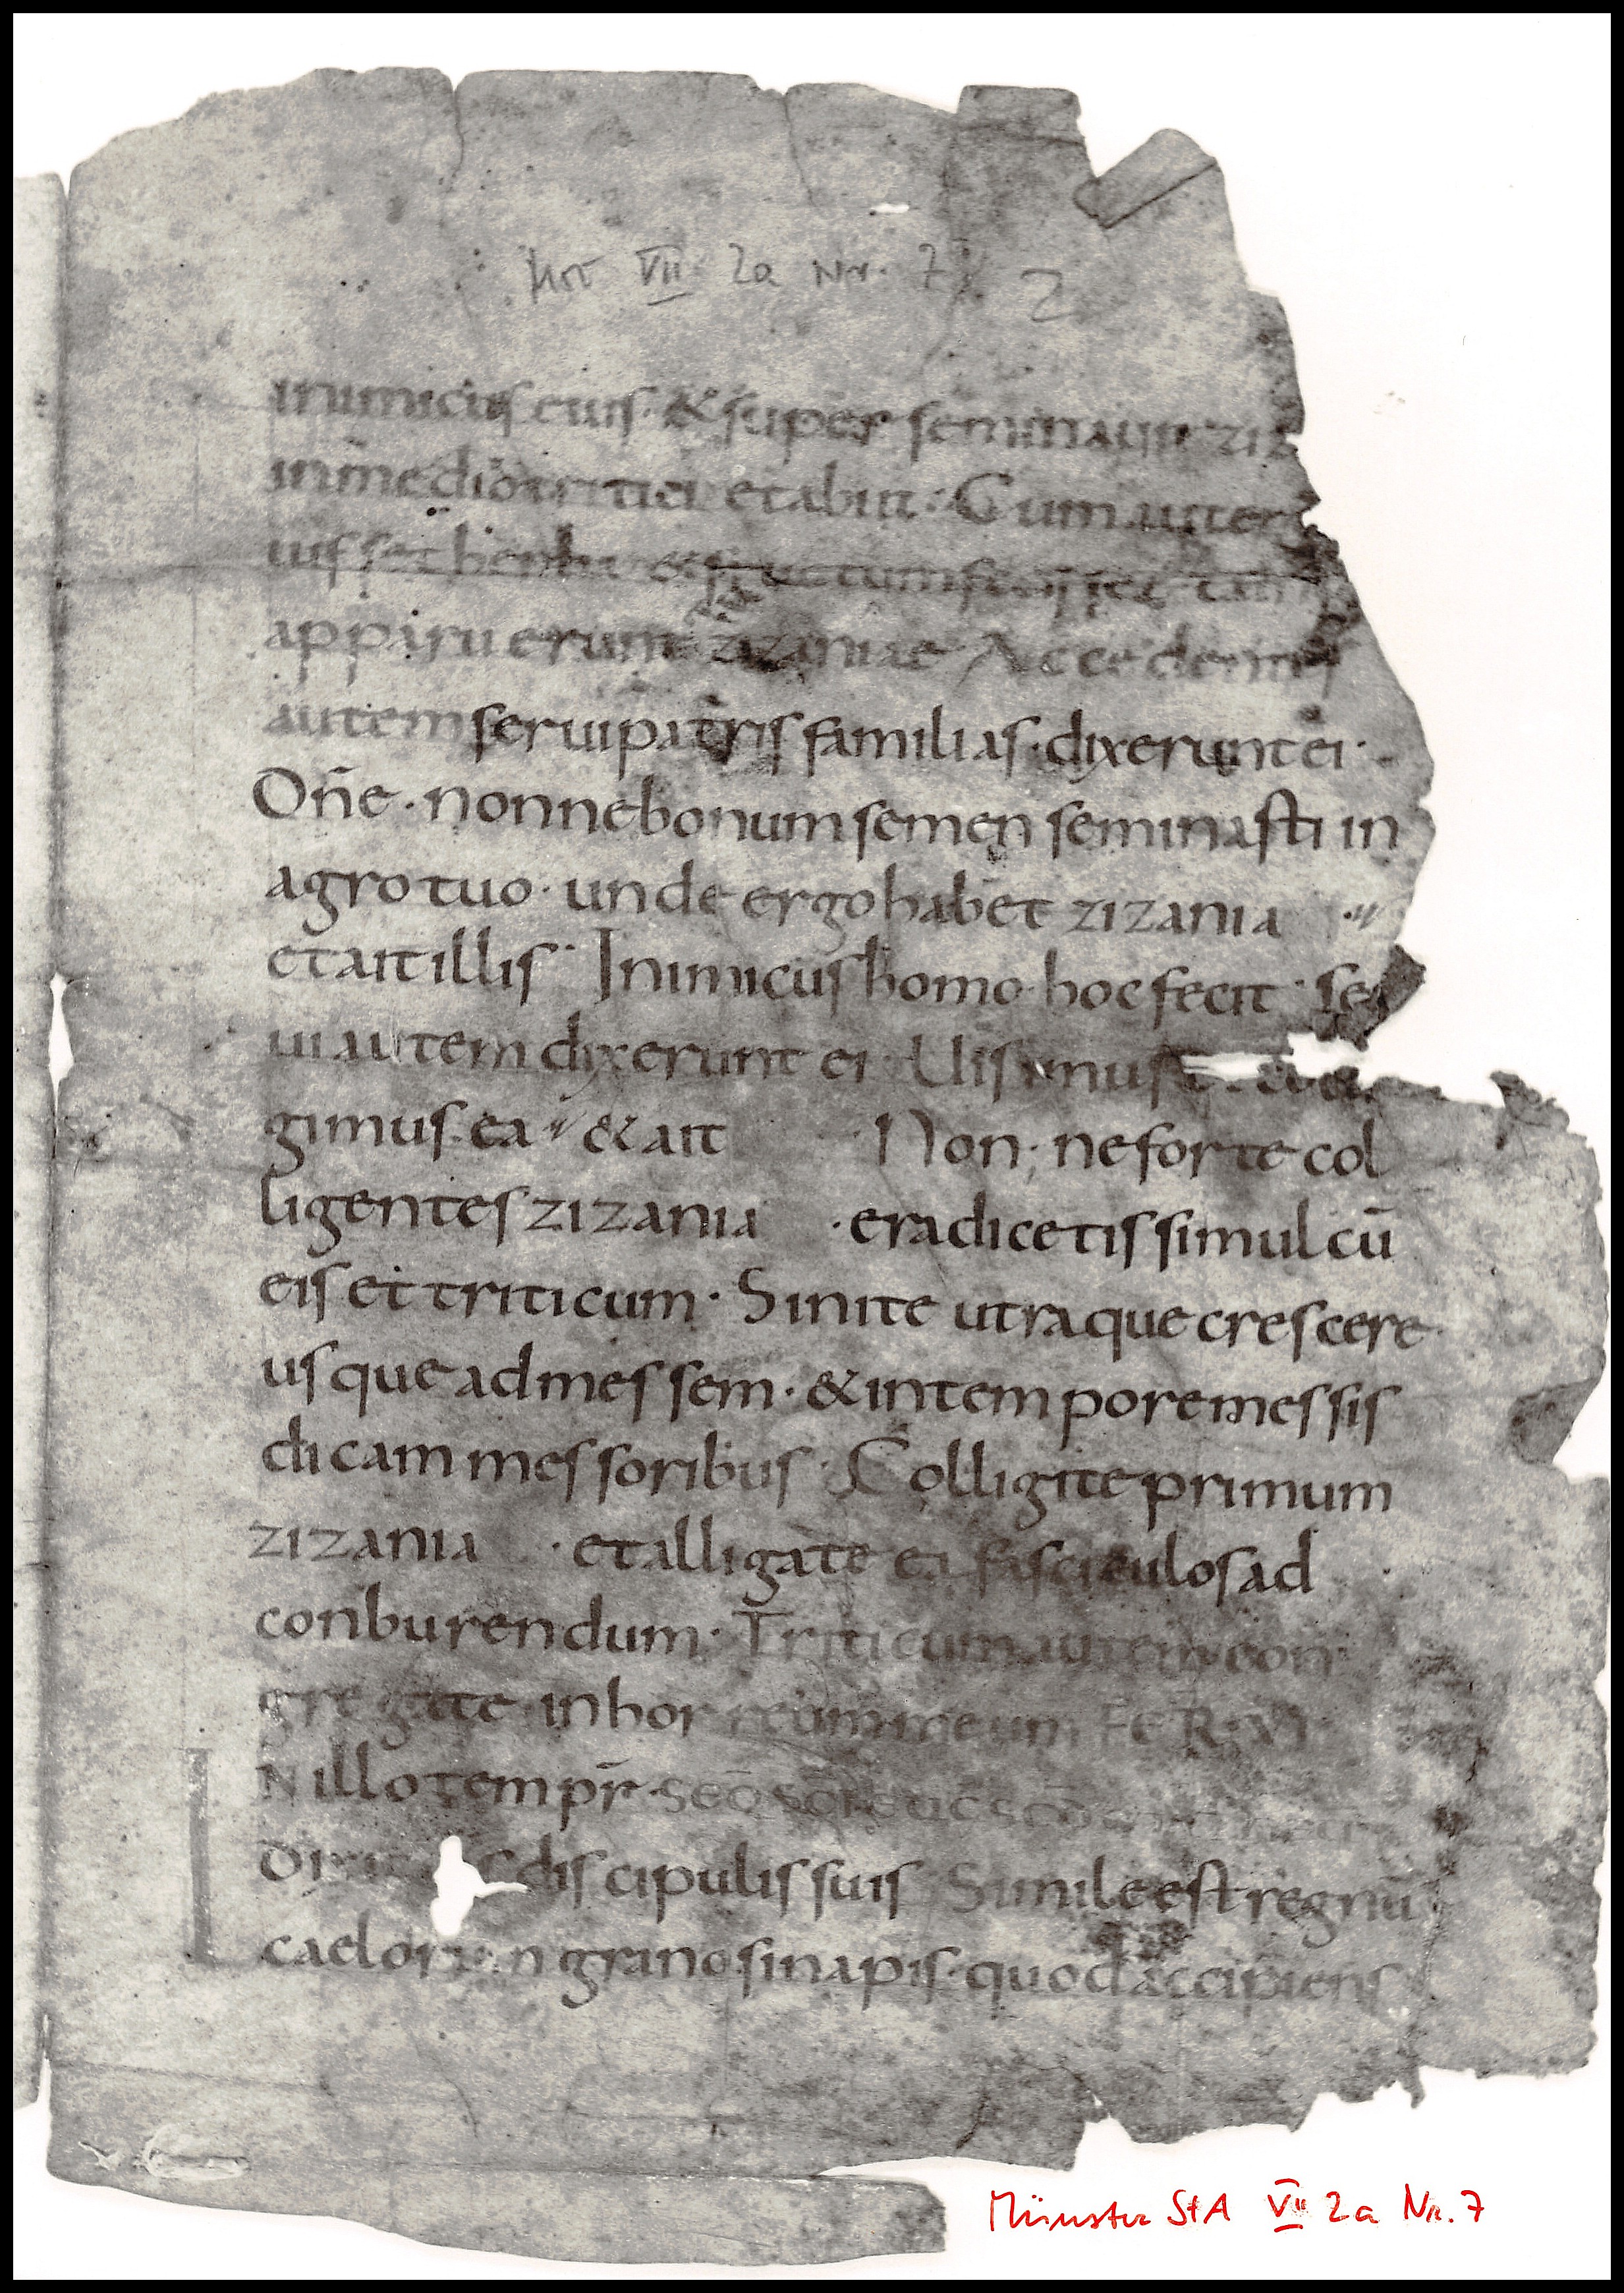 VII 2a Nr. 7 2
inimicus eius · & super seminauit ziz
in medio tritici et abiit · Cum autem
uisset herba & fructum fecisset
apparuerunt zizaniae Accedentes
autem serui patris familias · dixerunt ei ·
Dn̄e · nonne bonum semen seminasti in
agro tuo · unde ergo habet zizania
et ait illis · Inimicus homo hoc fecit · ser
ui autem dixerunt ei · Uis imus
gimus ea & ait Non · ne forte col
ligentes zizania · eradicetis simul cū
eis et triticum · Sinite utraque crescere
usque ad messem · & in tempore messis
dicam messoribus · Colligite primum
zizania · et alligate ea fasciculos ad
conburendum · Triticum autem con
gregate in horreum meum FER VI
IN illo tempr̄
Dixit discipulis suis Simile est regnū
caelorum grano sinapis · quod accipiens
Münster StA VII 2a Nr. 7